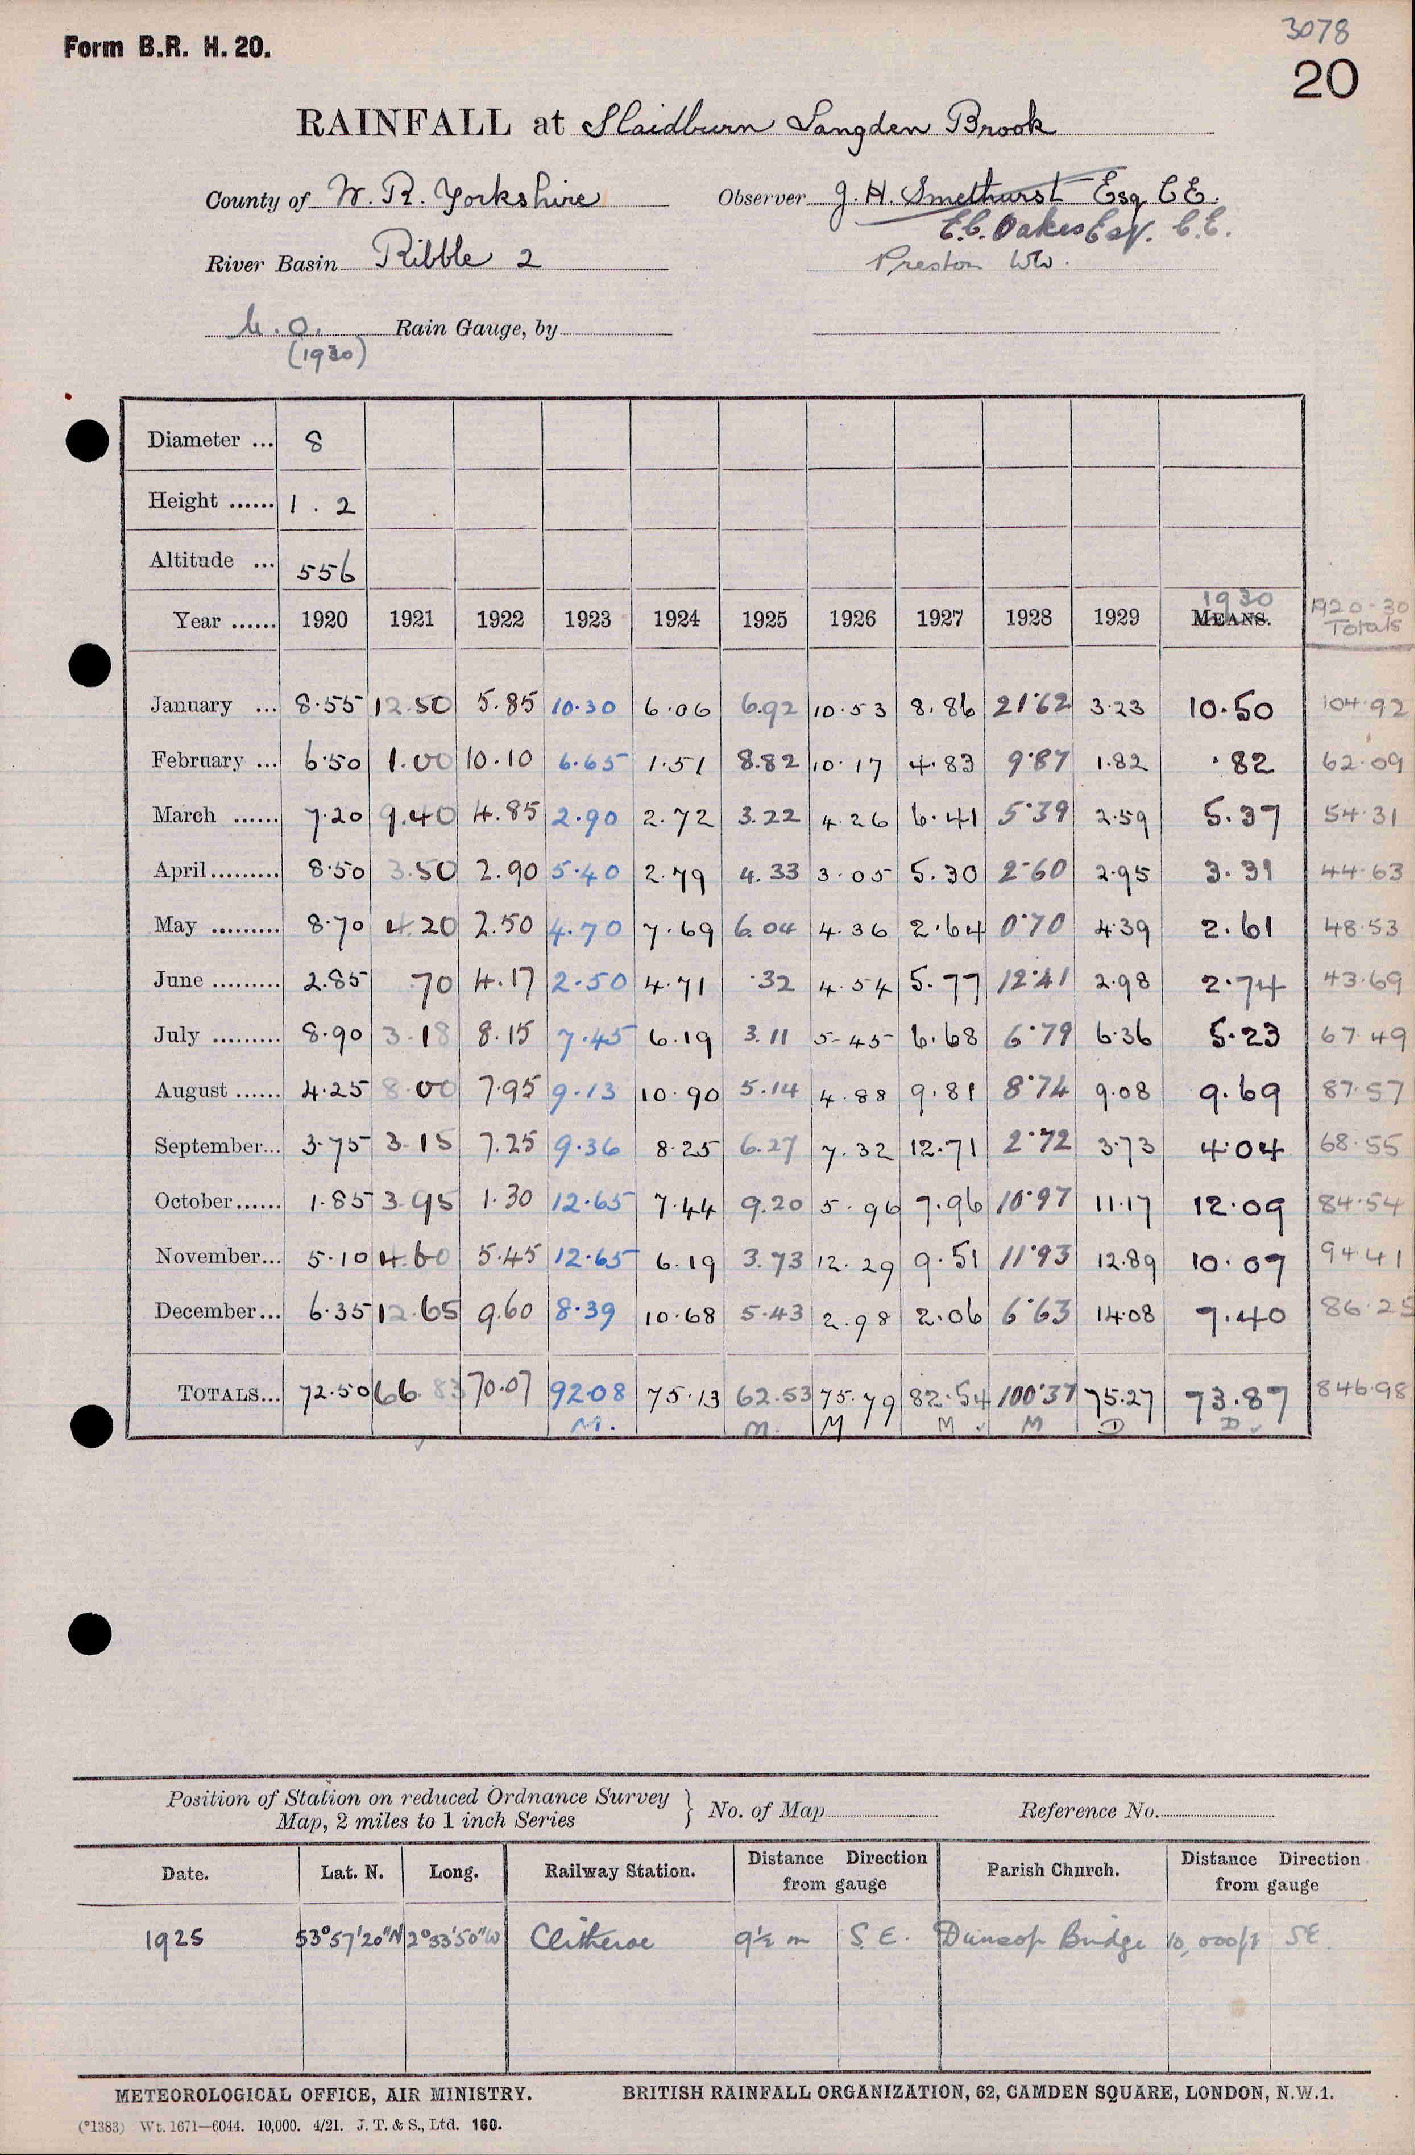 3078
Form B.R. H. 20.
20
RAINFALL at Slaidburn Langden Brook
County of W. R. Yorkshire Observer J. H. Smethurst Esq C.E.
E.C. Oakes Esq. C.E.
River Basin Ribble 2 Preston WW.
M.O. Rain Gauge, by
(1930)
Diameter ... 8
Height ...... 1 . 2
Altitude ... 556
Year ...... 1920 1921 1922 1923 1924 1925 1926 1927 1928 1929 1930 MEANS. 1920-30 Totals
January ... 8.55 12.50 5.85 10.30 6.06 6.92 10.53 8.86 21.62 3.23 10.50 104.92
February ... 6.50 1.00 10.10 6.65 1.51 8.82 10.17 4.83 9.87 1.82 .82 62.09
March ...... 7.20 9.40 4.85 2.90 2.72 3.22 4.26 6.41 5.39 2.59 5.37 54.31
April......... 8.50 3.50 2.90 5.40 2.79 4.33 3.05 5.30 2.60 2.95 3.31 44.63
May ......... 8.70 4.20 2.50 4.70 7.69 6.04 4.36 2.64 0.70 4.39 2.61 48.53
June ......... 2.85 .70 4.17 2.50 4.71 .32 4.54 5.77 12.41 2.98 2.74 43.69
July ......... 8.90 3.18 8.15 7.45 6.19 3.11 5.45 6.68 6.79 6.36 5.23 67.49
August ...... 4.25 8.00 7.95 9.13 10.90 5.14 4.88 9.81 8.74 9.08 9.69 87.57
September... 3.75 3.15 7.25 9.36 8.25 6.27 7.32 12.71 2.72 3.73 4.04 68.55
October...... 1.85 3.95 1.30 12.65 7.44 9.20 5.96 7.96 10.97 11.17 12.09 84.54
November... 5.10 4.60 5.45 12.65 6.19 3.73 12.29 9.51 11.93 12.89 10.07 94.41
December... 6.35 12.65 9.60 8.39 10.68 5.43 2.98 2.06 6.63 14.08 7.40 86.25
TOTALS... 72.50 66.83 70.07 92.08 75.13 62.53 75.79 82.54 100.37 75.27 73.87 846.98
M. M. M M M D D
Position of Station on reduced Ordnance Survey
Map, 2 miles to 1 inch Series } No. of Map Reference No.
Date. Lat. N. Long. Railway Station. Distance Direction from gauge Parish Church. Distance Direction from gauge
1925 53°57'20"N 2°33'50"W Clitheroe 9½ m S.E. Dunsop Bridge 10,000ft SE.
METEOROLOGICAL OFFICE, AIR MINISTRY. BRITISH RAINFALL ORGANIZATION, 62, CAMDEN SQUARE, LONDON, N.W.1.
(*1383) Wt. 1671—6044. 10,000. 4/21. J. T. & S., Ltd. 160.